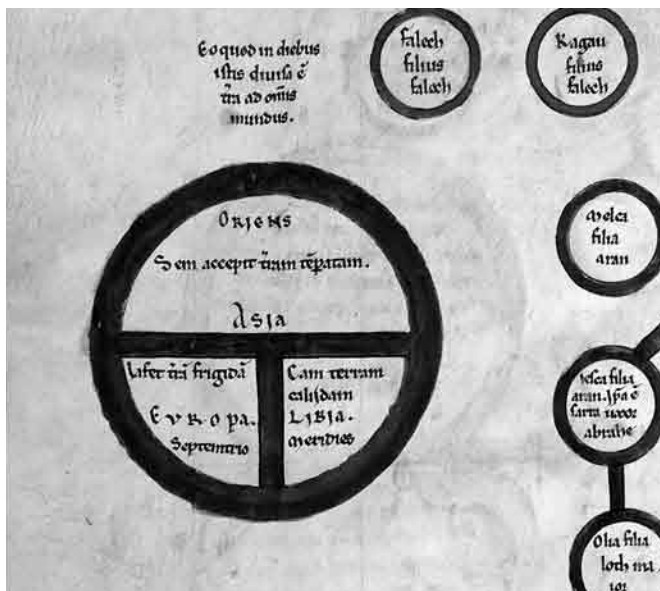 Eo quod in diebus
istis diuisa ē
t̄ra ad om̄is
mundus.
falech
filius
falech
Ragau
filius
falech
ORIENS
Sem accepit t̄ram tēperatam.
ASIA
Iafet t̄rā frigidā
EVROPA.
Septemtrio
Cam terram
calidam
LIBIA.
meridies
melca
filia
aran
Iesca filia
aran. Ip̄a ē
sarra uxor
abrahe
Olia filia
loth ma
ior